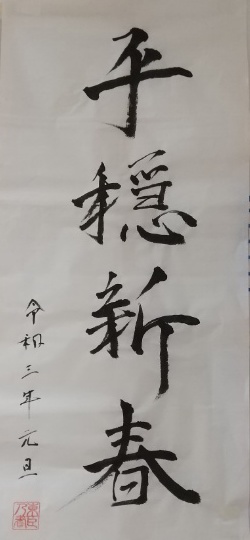 平穏新春
令和三年元旦